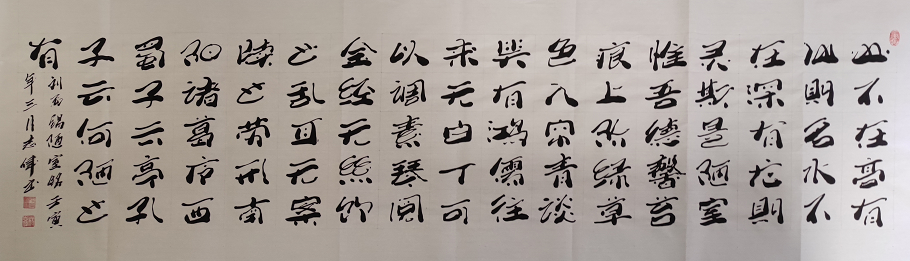 山不在高有
仙則名水不
在深有龙則
灵斯是陋室
惟吾德馨苔
痕上阶綠草
色入帘青談
笑有鴻儒往
来无白丁可
以調素琴閱
金經无絲竹
之乱耳无案
牘之勞形南
阳諸葛庐西
蜀子云亭孔
子云何陋之
有
刘禹锡陋室铭壬寅
年三月志伟书